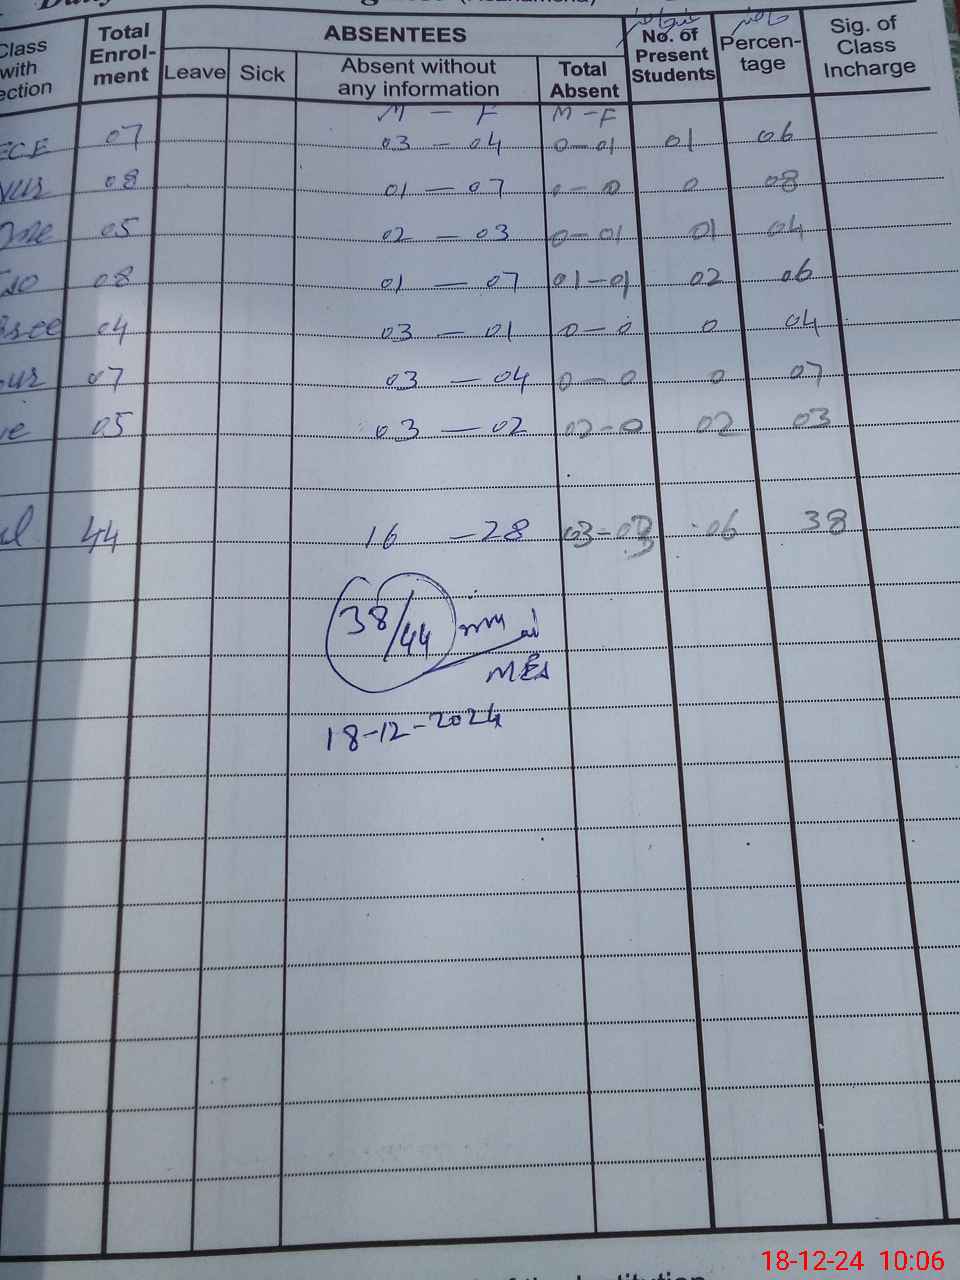 Class with ection
Total Enrol- ment
ABSENTEES
Leave
Sick
Absent without any information
Total Absent
No. of Present Students
حاضر
Percen- tage
Sig. of Class Incharge
M — F M – F
ECE 07 03 — 04 0 — 01 01 06
08 01 — 07 0 — 0 0 08
05 02 — 03 0 — 01 01 04
08 01 — 07 01 – 01 02 06
04 03 — 01 0 — 0 0 04
07 03 — 04 0 — 0 0 07
05 03 — 02 02 – 0 02 03
44 16 — 28 03 – 03 06 38
38/44
MEA
18-12-2024
18-12-24 10:06